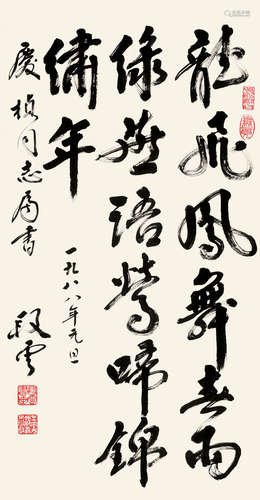 龍飛鳳舞春雨
綠燕語鶯啼錦
繡年
慶楨同志属書
一九八八年元旦
段雲